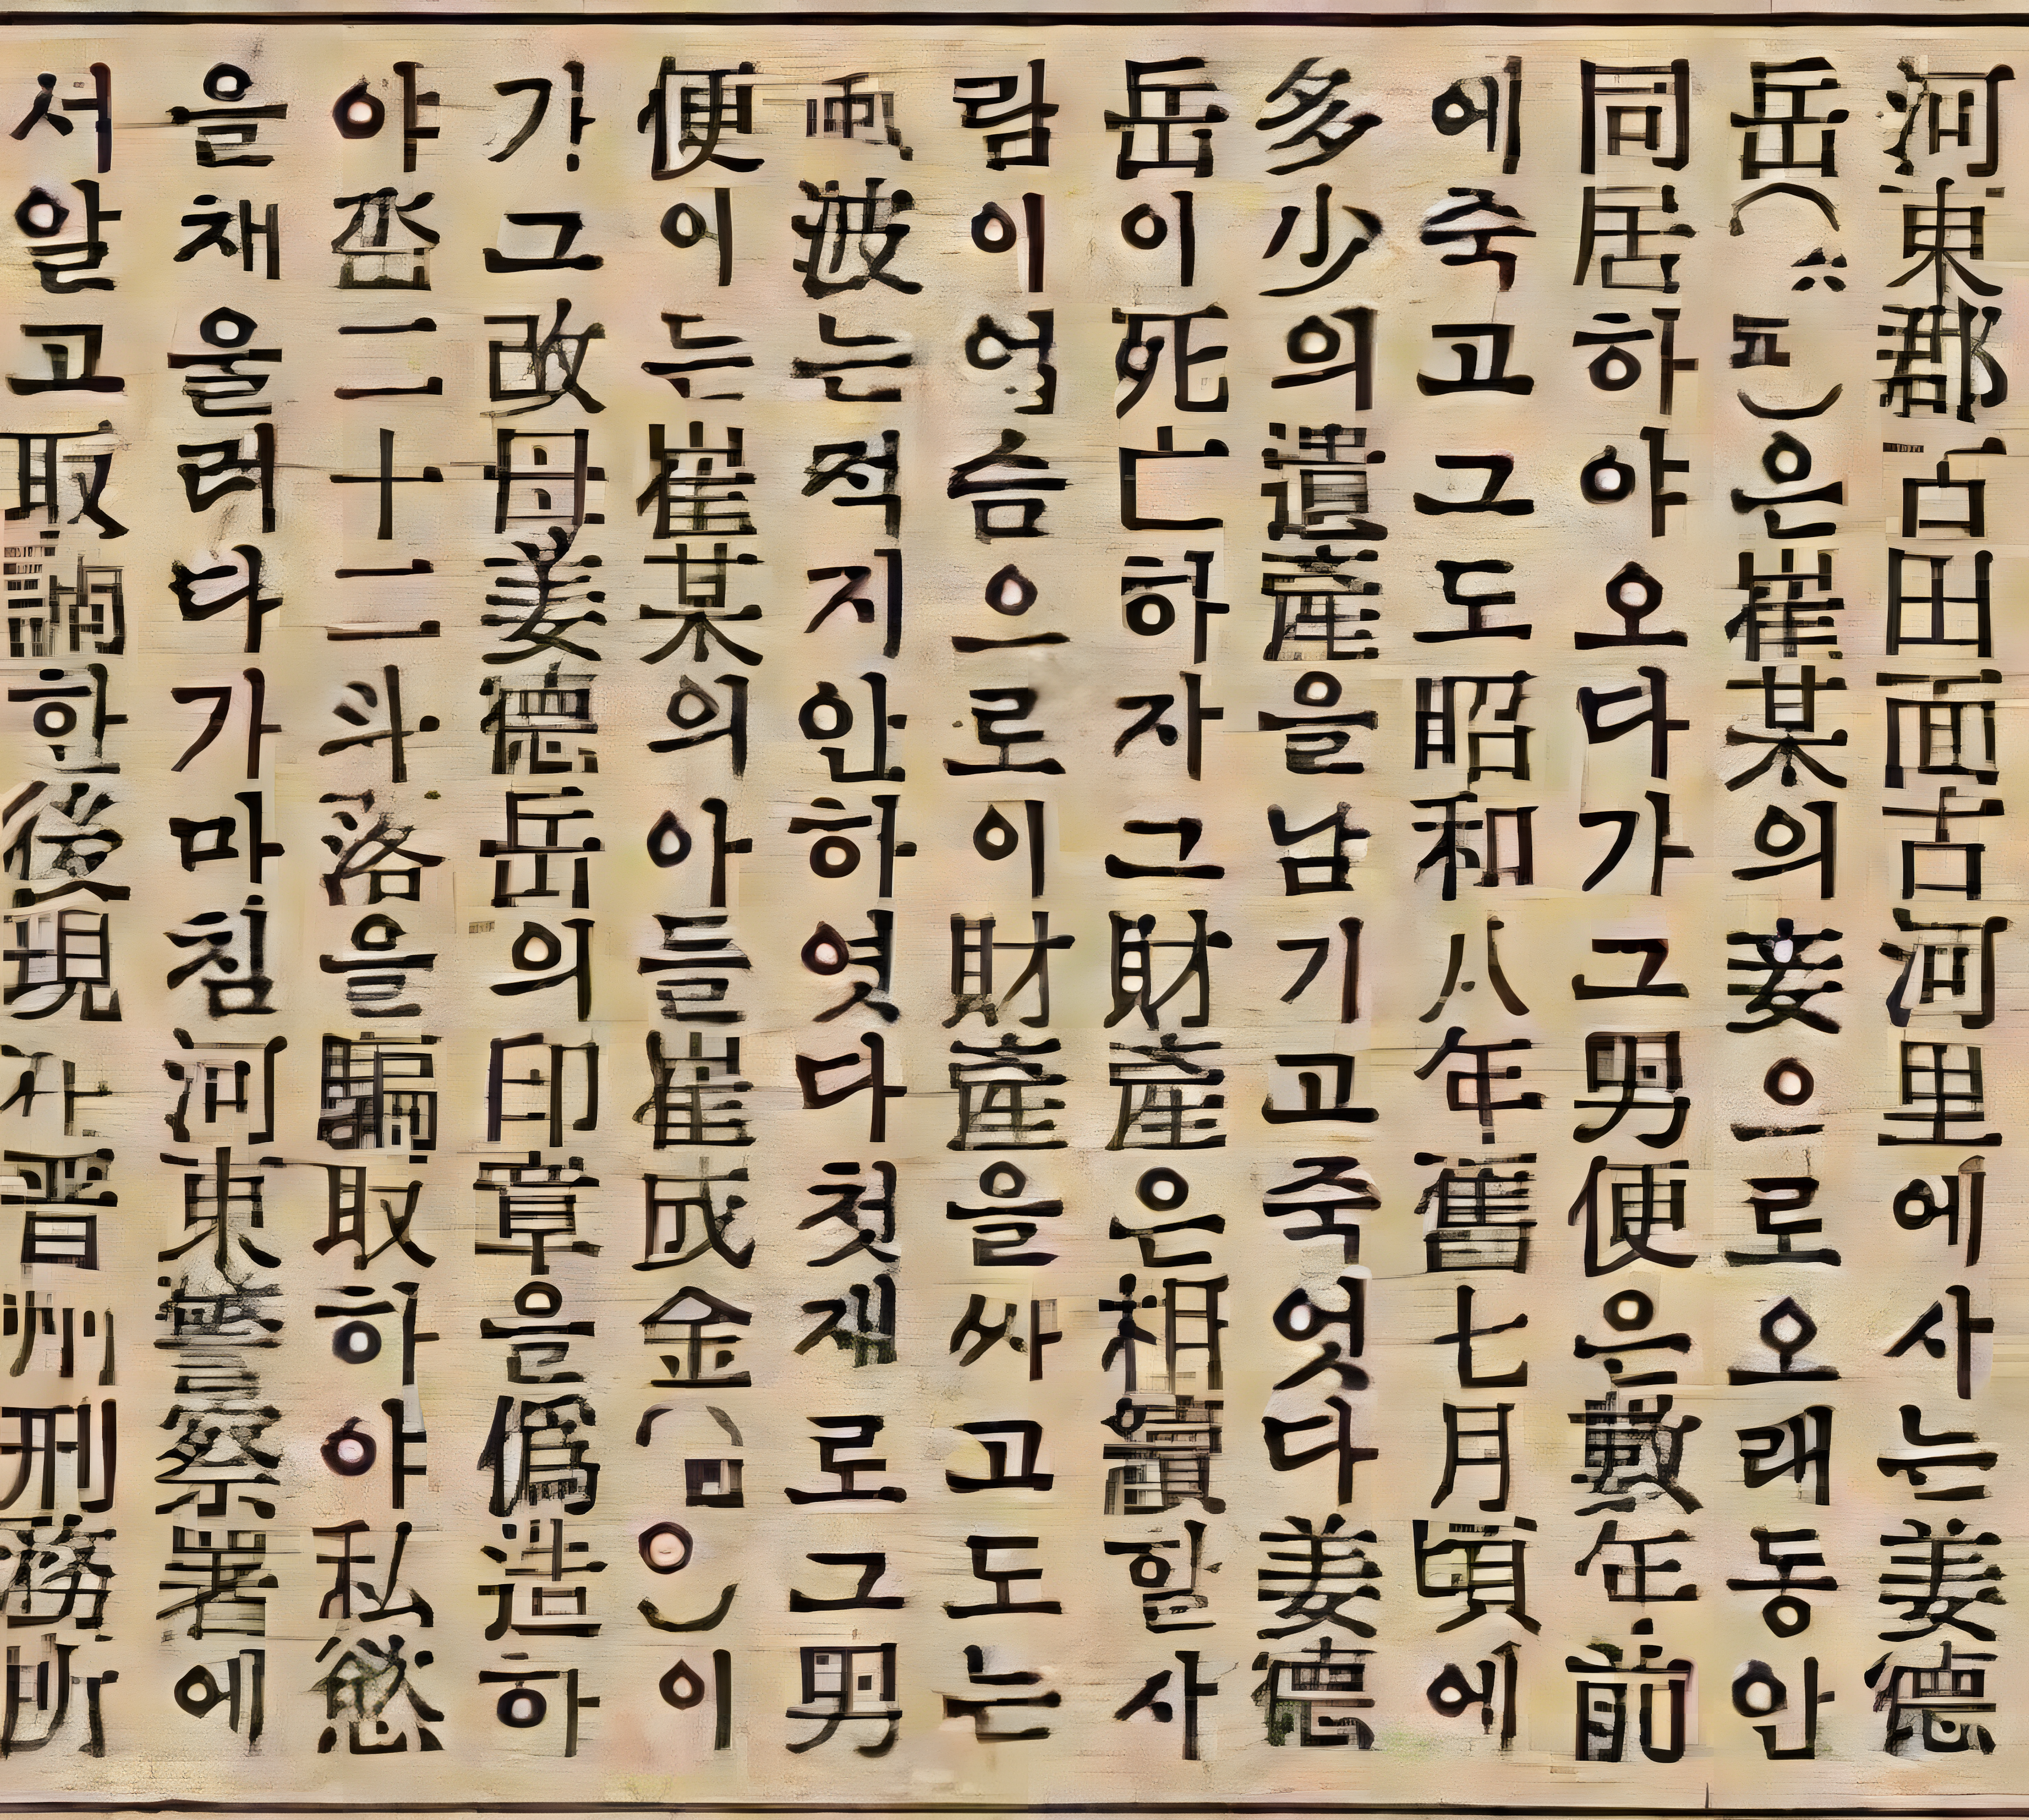 河東郡古田面古河里에사는姜德
岳(五)은崔某의妾으로오래동안
同居하야오다가그男便은數年前
에죽고그도昭和八年舊七月頃에
多少의遺産을남기고죽엇다姜德
岳이死亡하자그財産은相續할사
람이업슴으로이財産을싸고도는
波는적지안하엿다첫재로그男
便이는崔某의아들崔成金()이
가그改母姜德岳의印章을僞造하
야畓二十二斗落을騙取하야私慾
을채울러다가마침河東警察署에
서알고取調한後現 晋州刑務所